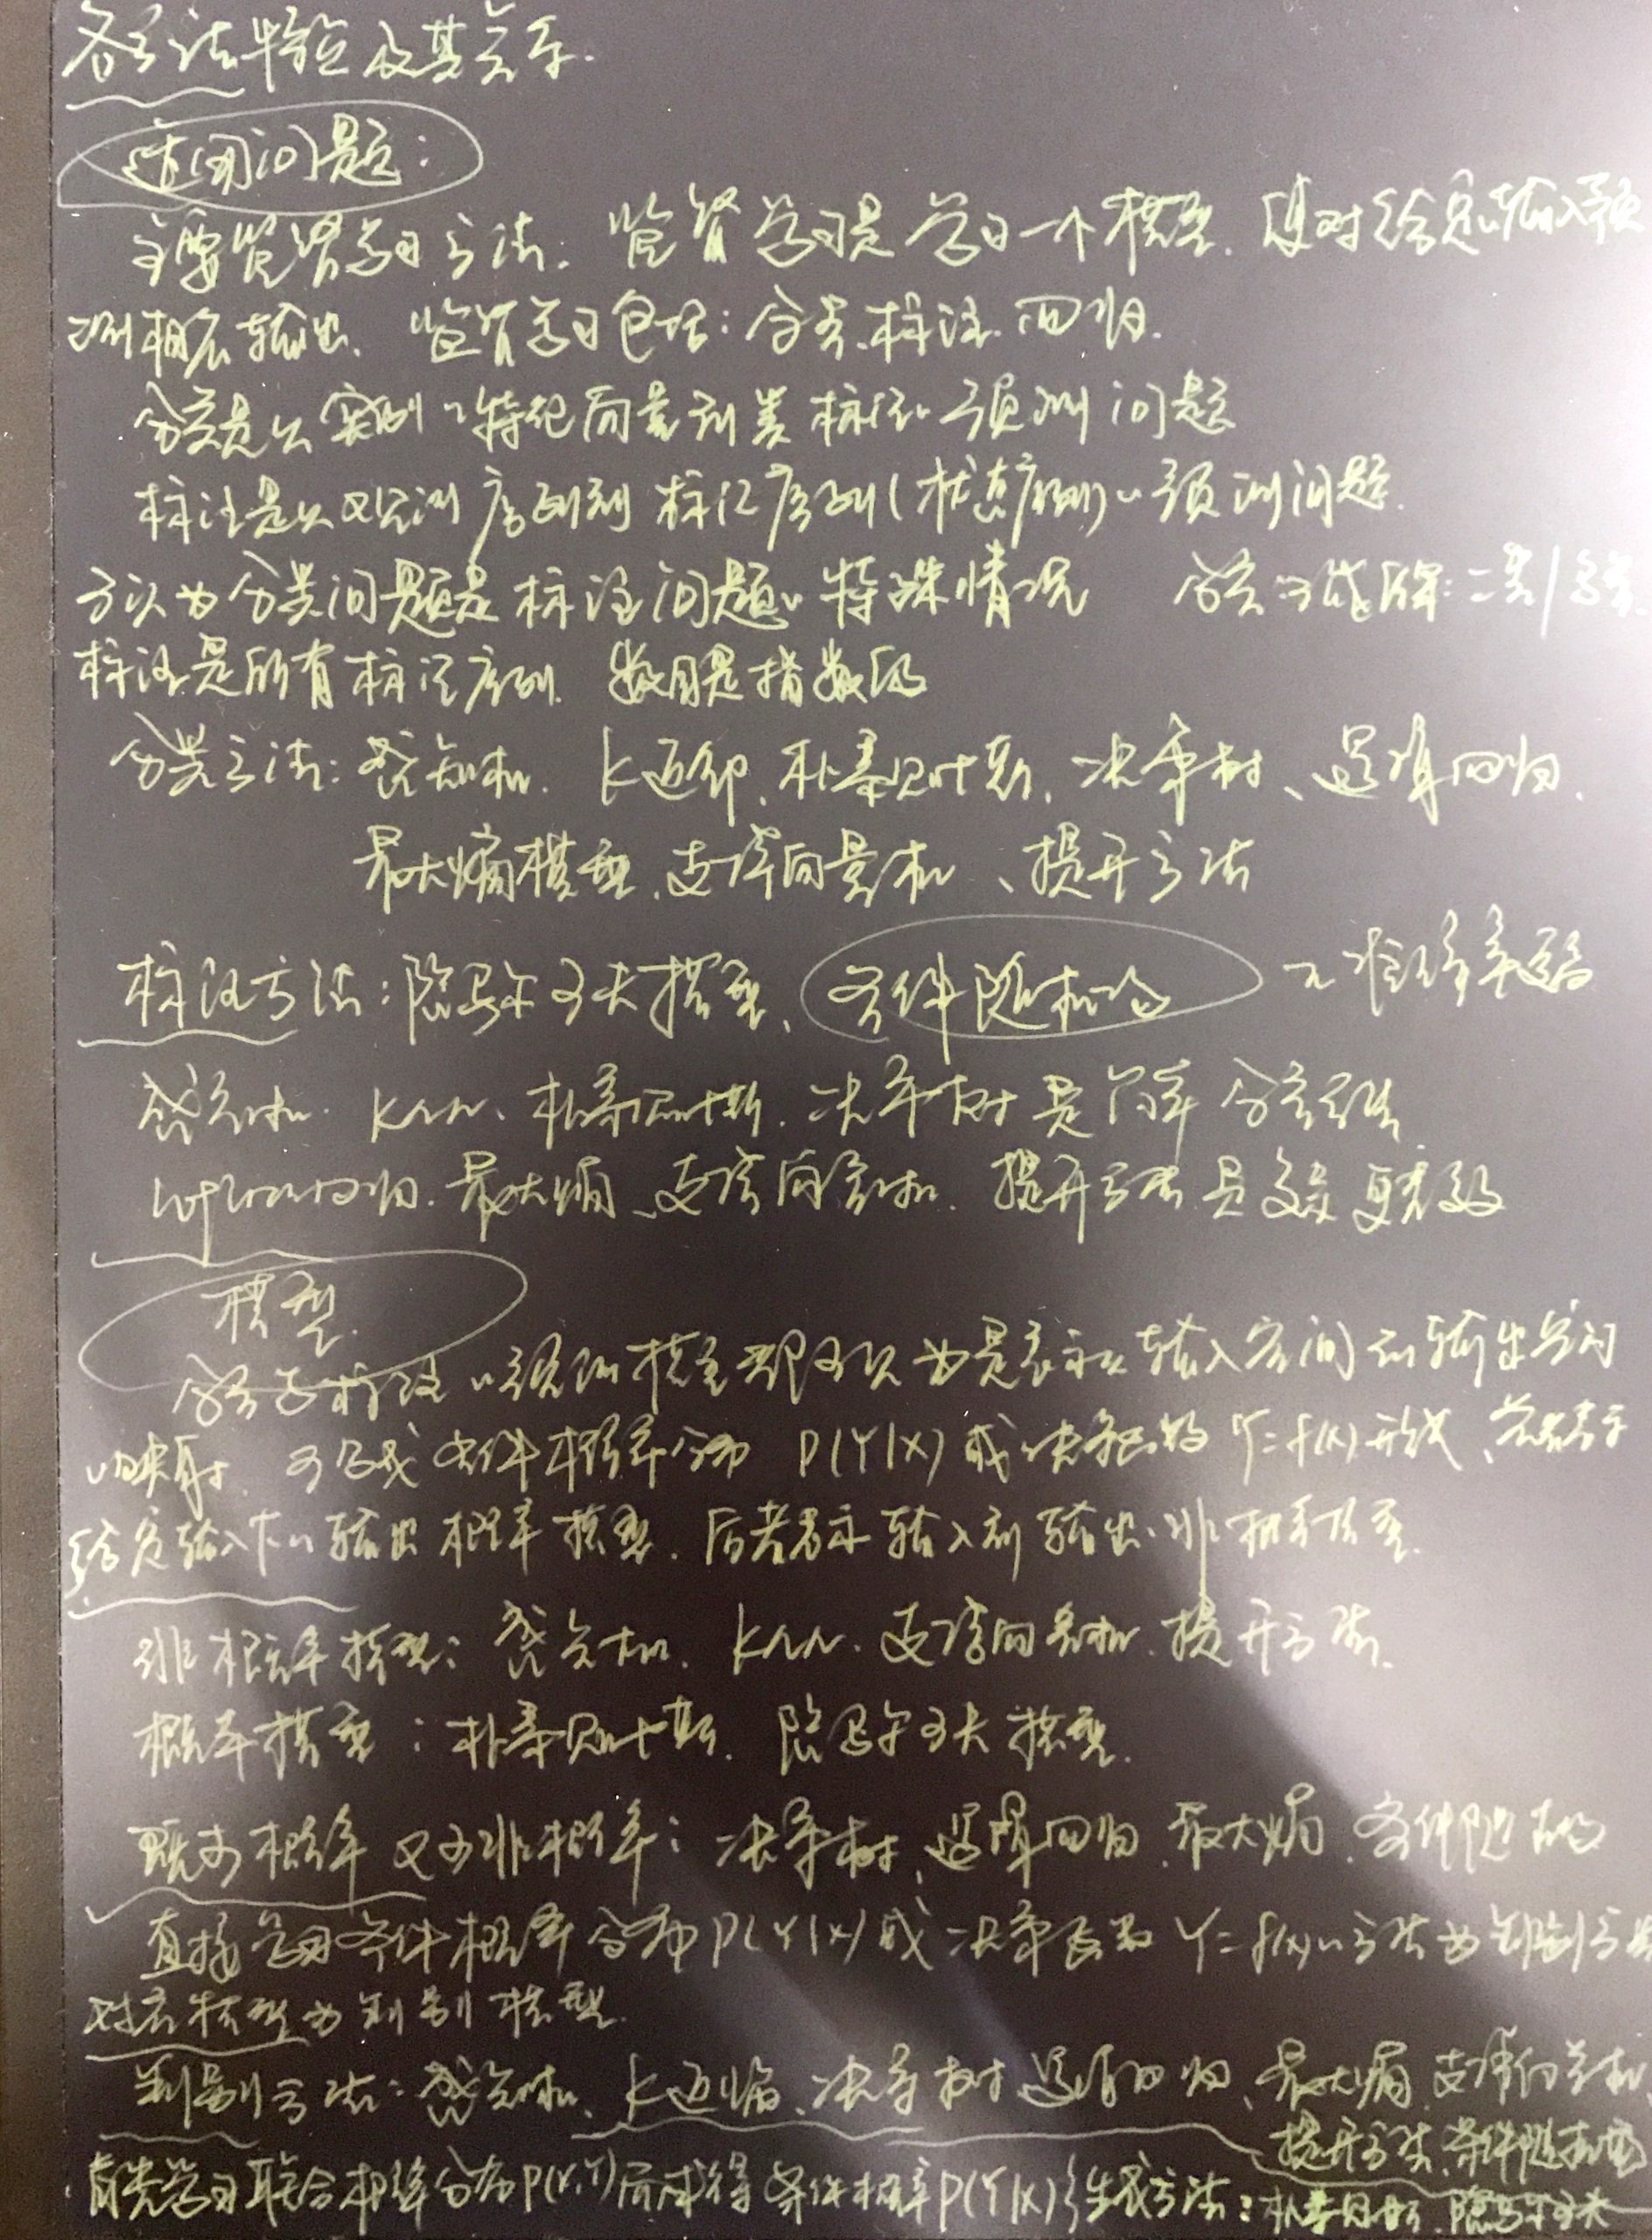 各方法特点及其关系.
适用问题:
主要监督学习方法. 监督学习是学习一个模型. 使对给定输入预
测相应输出. 监督学习包括: 分类. 标注. 回归.
分类是从实例的特征向量到类标记的预测问题
标注是从观测序列到标记序列(状态序列)的预测问题.
可认为分类问题是标注问题的特殊情况 分类可能结果: 二类/多类
标注是所有标记序列. 数目是指数级
分类方法: 感知机. k近邻、朴素贝叶斯, 决策树、逻辑回归.
最大熵模型. 支持向量机、提升方法
标注方法: 隐马尔可夫模型、条件随机场
感知机. Knn、朴素贝叶斯. 决策树是简单分类方法
回归. 最大熵、支持向量机. 提升方法是复杂更有效
模型.
分类与标注的预测模型都可以为是表示从输入空间到输出空间
的映射. 可写成条件概率分布 P(Y|X) 或决策函数 Y=f(X) 形式、前者表示
给定输入下的输出概率模型. 后者表示输入到输出的非概率模型.
非概率模型: 感知机. Knn. 支持向量机. 提升方法.
概率模型: 朴素贝叶斯. 隐马尔可夫模型.
既可概率又可非概率: 决策树. 逻辑回归. 最大熵. 条件随机场
直接学习条件概率分布 P(Y|X) 或决策函数 Y=f(X) 的方法为判别方法
对应模型为判别模型.
判别方法: 感知机、k近临、决策树 逻辑回归、最大熵. 支持向量机
提升方法. 条件随机场
首先学习联合概率分布P(X,Y)而求得条件概率P(Y|X) 生成方法: 朴素贝叶斯. 隐马尔可夫